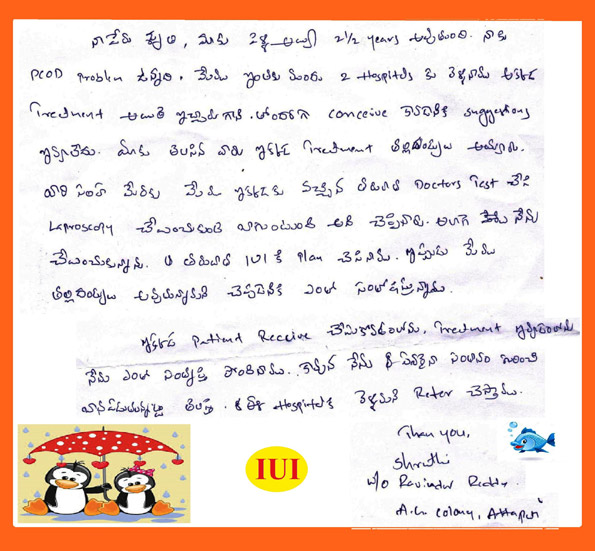 నా పేరు శృతి, మాకు పెళ్లి అయ్యి 2 1/2 years అవుతుంది. నాకు
PCOD Problem ఉన్నది. మేము ఇంతకు ముందు 2 Hospitals కు వెళ్లినాము అక్కడ
Treatment అయితే ఇచ్చారు గాని తొందరగా conceive కావడానికి suggestions
ఇవ్వలేదు. మాకు తెలిసిన వారు ఇక్కడ Treatment తల్లిదండ్రులు అయ్యారు.
వారి సలహా మేరకు మేము ఇక్కడకు వచ్చిన తరువాత Doctors Test చేసి
Laproscopy చేయించుకుంటే బాగుంటుంది అని చెప్పినారు. అలాగే నేను
చేయించుకున్నాను. ఆ తరువాత IUI కి Plan చేసినాము. ఇప్పుడు మేము
తల్లిదండ్రులు అవుతున్నామని చెప్పడానికి ఎంతో సంతోషిస్తున్నాము.
ఇక్కడ Patient Receive చేసుకోవడంలోను, Treatment ఇవ్వడంలోను
నేను ఎంతో సంతృప్తి పొందినాము. కావున నేను సంతానం గురించి
ఈ Hospitalకి వెళ్లమని Refer చేస్తాము.
Than you,
Shruthi
W/o Ravinder Reddy.
A.G. colony, Attapur
IUI